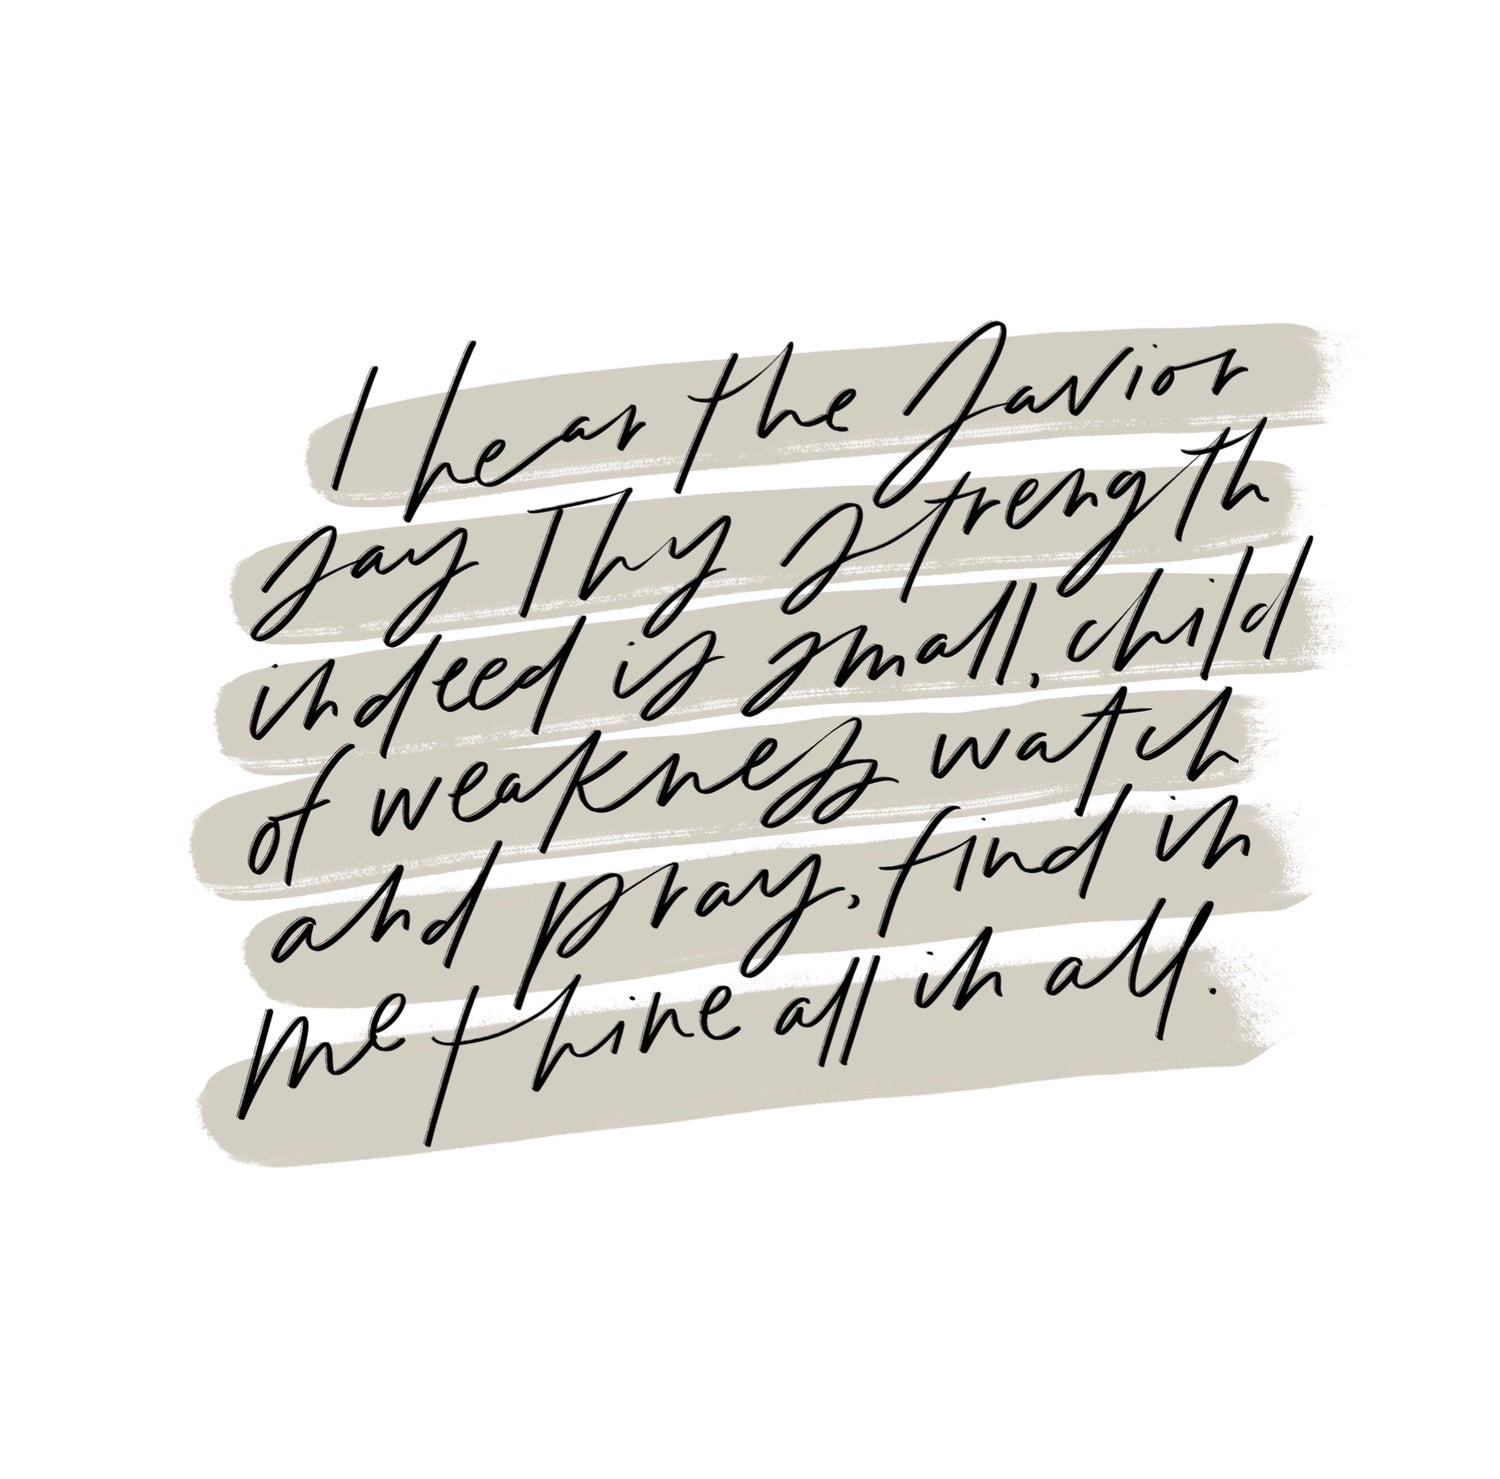 I hear the Savior
say Thy strength
indeed is small, child
of weakness watch
and pray, find in
me thine all in all.